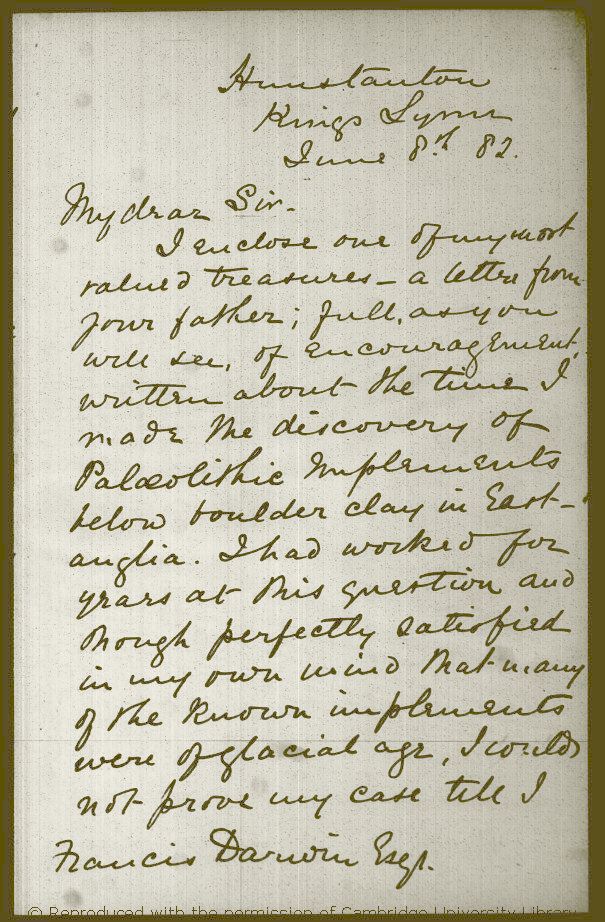 Hunstanton
Kings Lynn
June 8th 82.
My dear Sir.
I enclose one of my most
valued treasures – a letter from
your father; full, as you
will see, of encouragement,
written about the time I
made the discovery of
Palæolithic Implements
below boulder clay in East-
anglia. I had worked for
years at this question and
though perfectly satisfied
in my own mind that many
of the known implements
were of glacial age, I could
not prove my case till I
Francis Darwin Esqr.
© Reproduced with the permission of Cambridge University Library